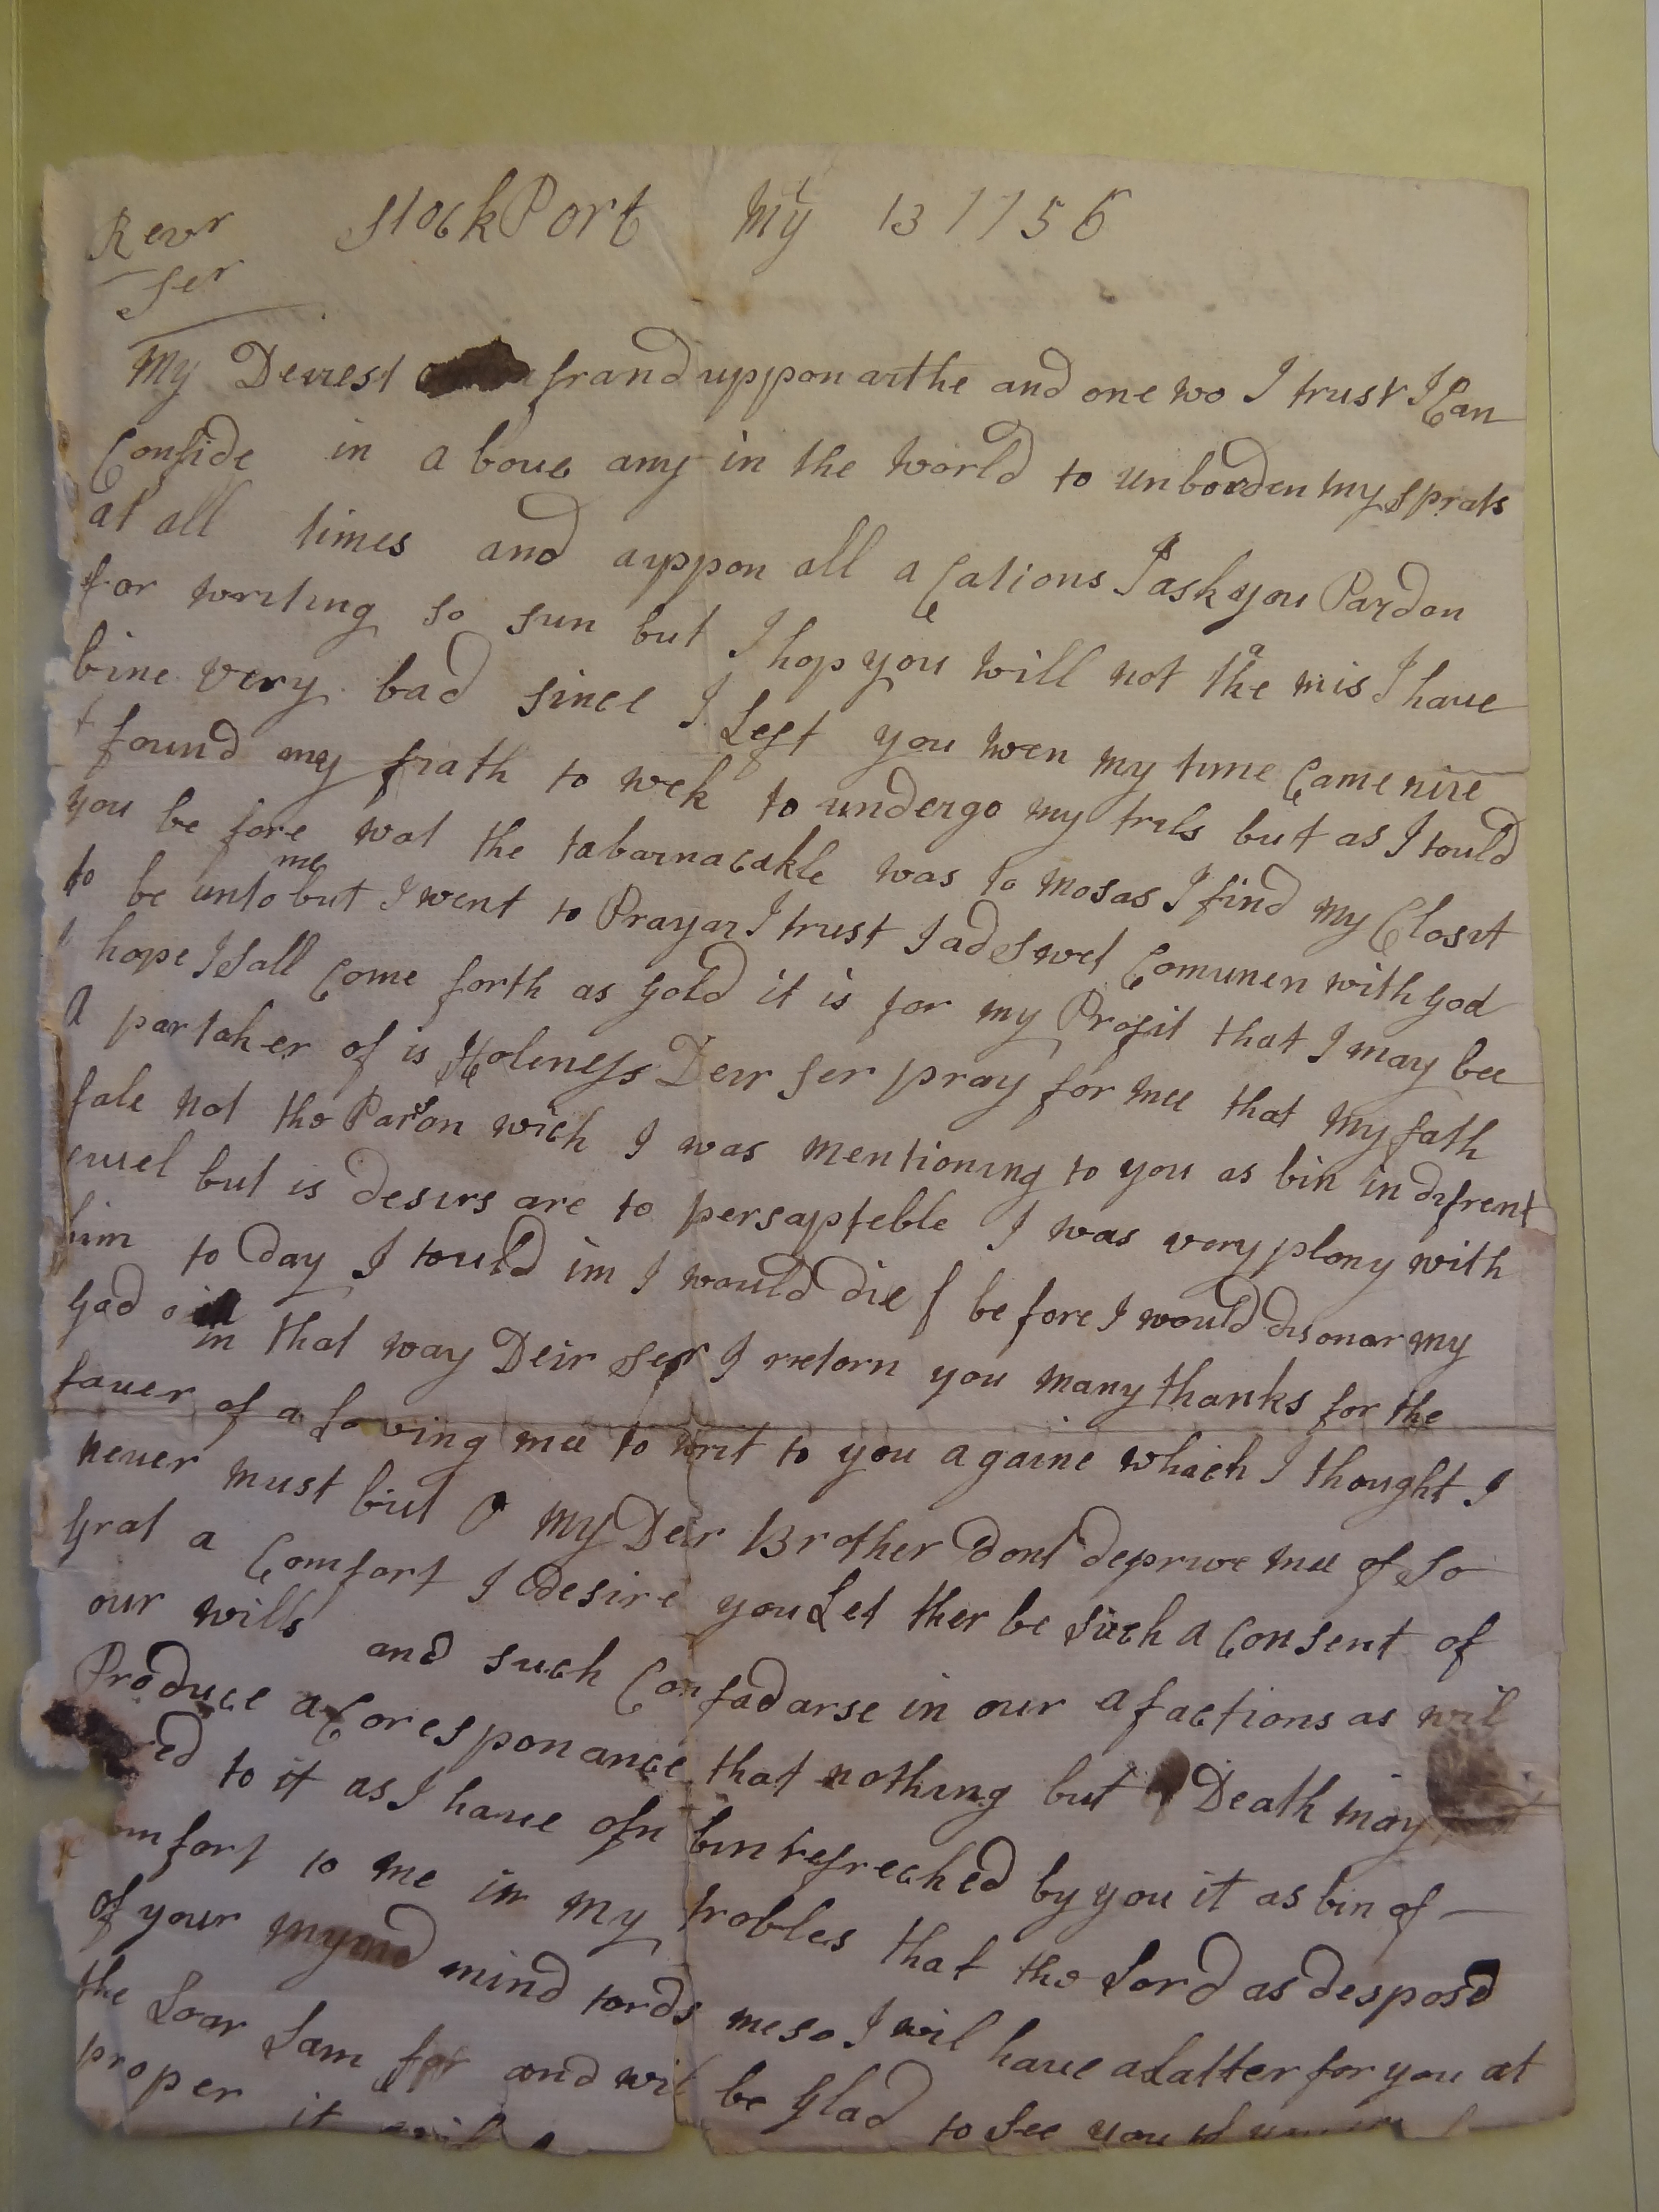 Revr StockPort My 13 1756
Ser
My Deirest frand uppon arthe and one wo I trust I Can
Confide in a boue any in the world to unborden my sprats
at all times and auppon all a Cations I ask you Pardon
for writing so sun but I hop you will not tha mis I haue
bine very bad since I Left you wen my time Came nire
I found my frath to wek to undergo my trils but as I tould
you be fore wat the tabarnacakle was to mosas I find my Closit
to be unto me but I went to Prayar I trust I ad Swet Comunen with God
I hope I Sall Come forth as Gold it is for my Profit that I may bee
A partaker of is Holeness Deir Ser pray for mee that my fath
fale not the Parson wich I was mentioning to you as bin indifrent
but is desirs are to persapteble I was very plony with
him to Day I tould im I would die before I would disonar my
God in that way Deir Ser I retorn you many thanks for the
fauer of a Loving mee to writ to you againe which I thought I
neuer must but O my Deir Brother dont deprive mee of So
Grat a Comfort I desire you Let ther be such a Consent of
our wills and such Confadarse in our afactions as wil
Produce a Coresponance that nothing but Death may
to it as I haue ofn bin refreched by you it as bin of
to me in my trobles that the Lord as desposd
of your mind tords me so I wil haue a Latter for you at
the Loar Lam for and wil be Glad to See you
proper it